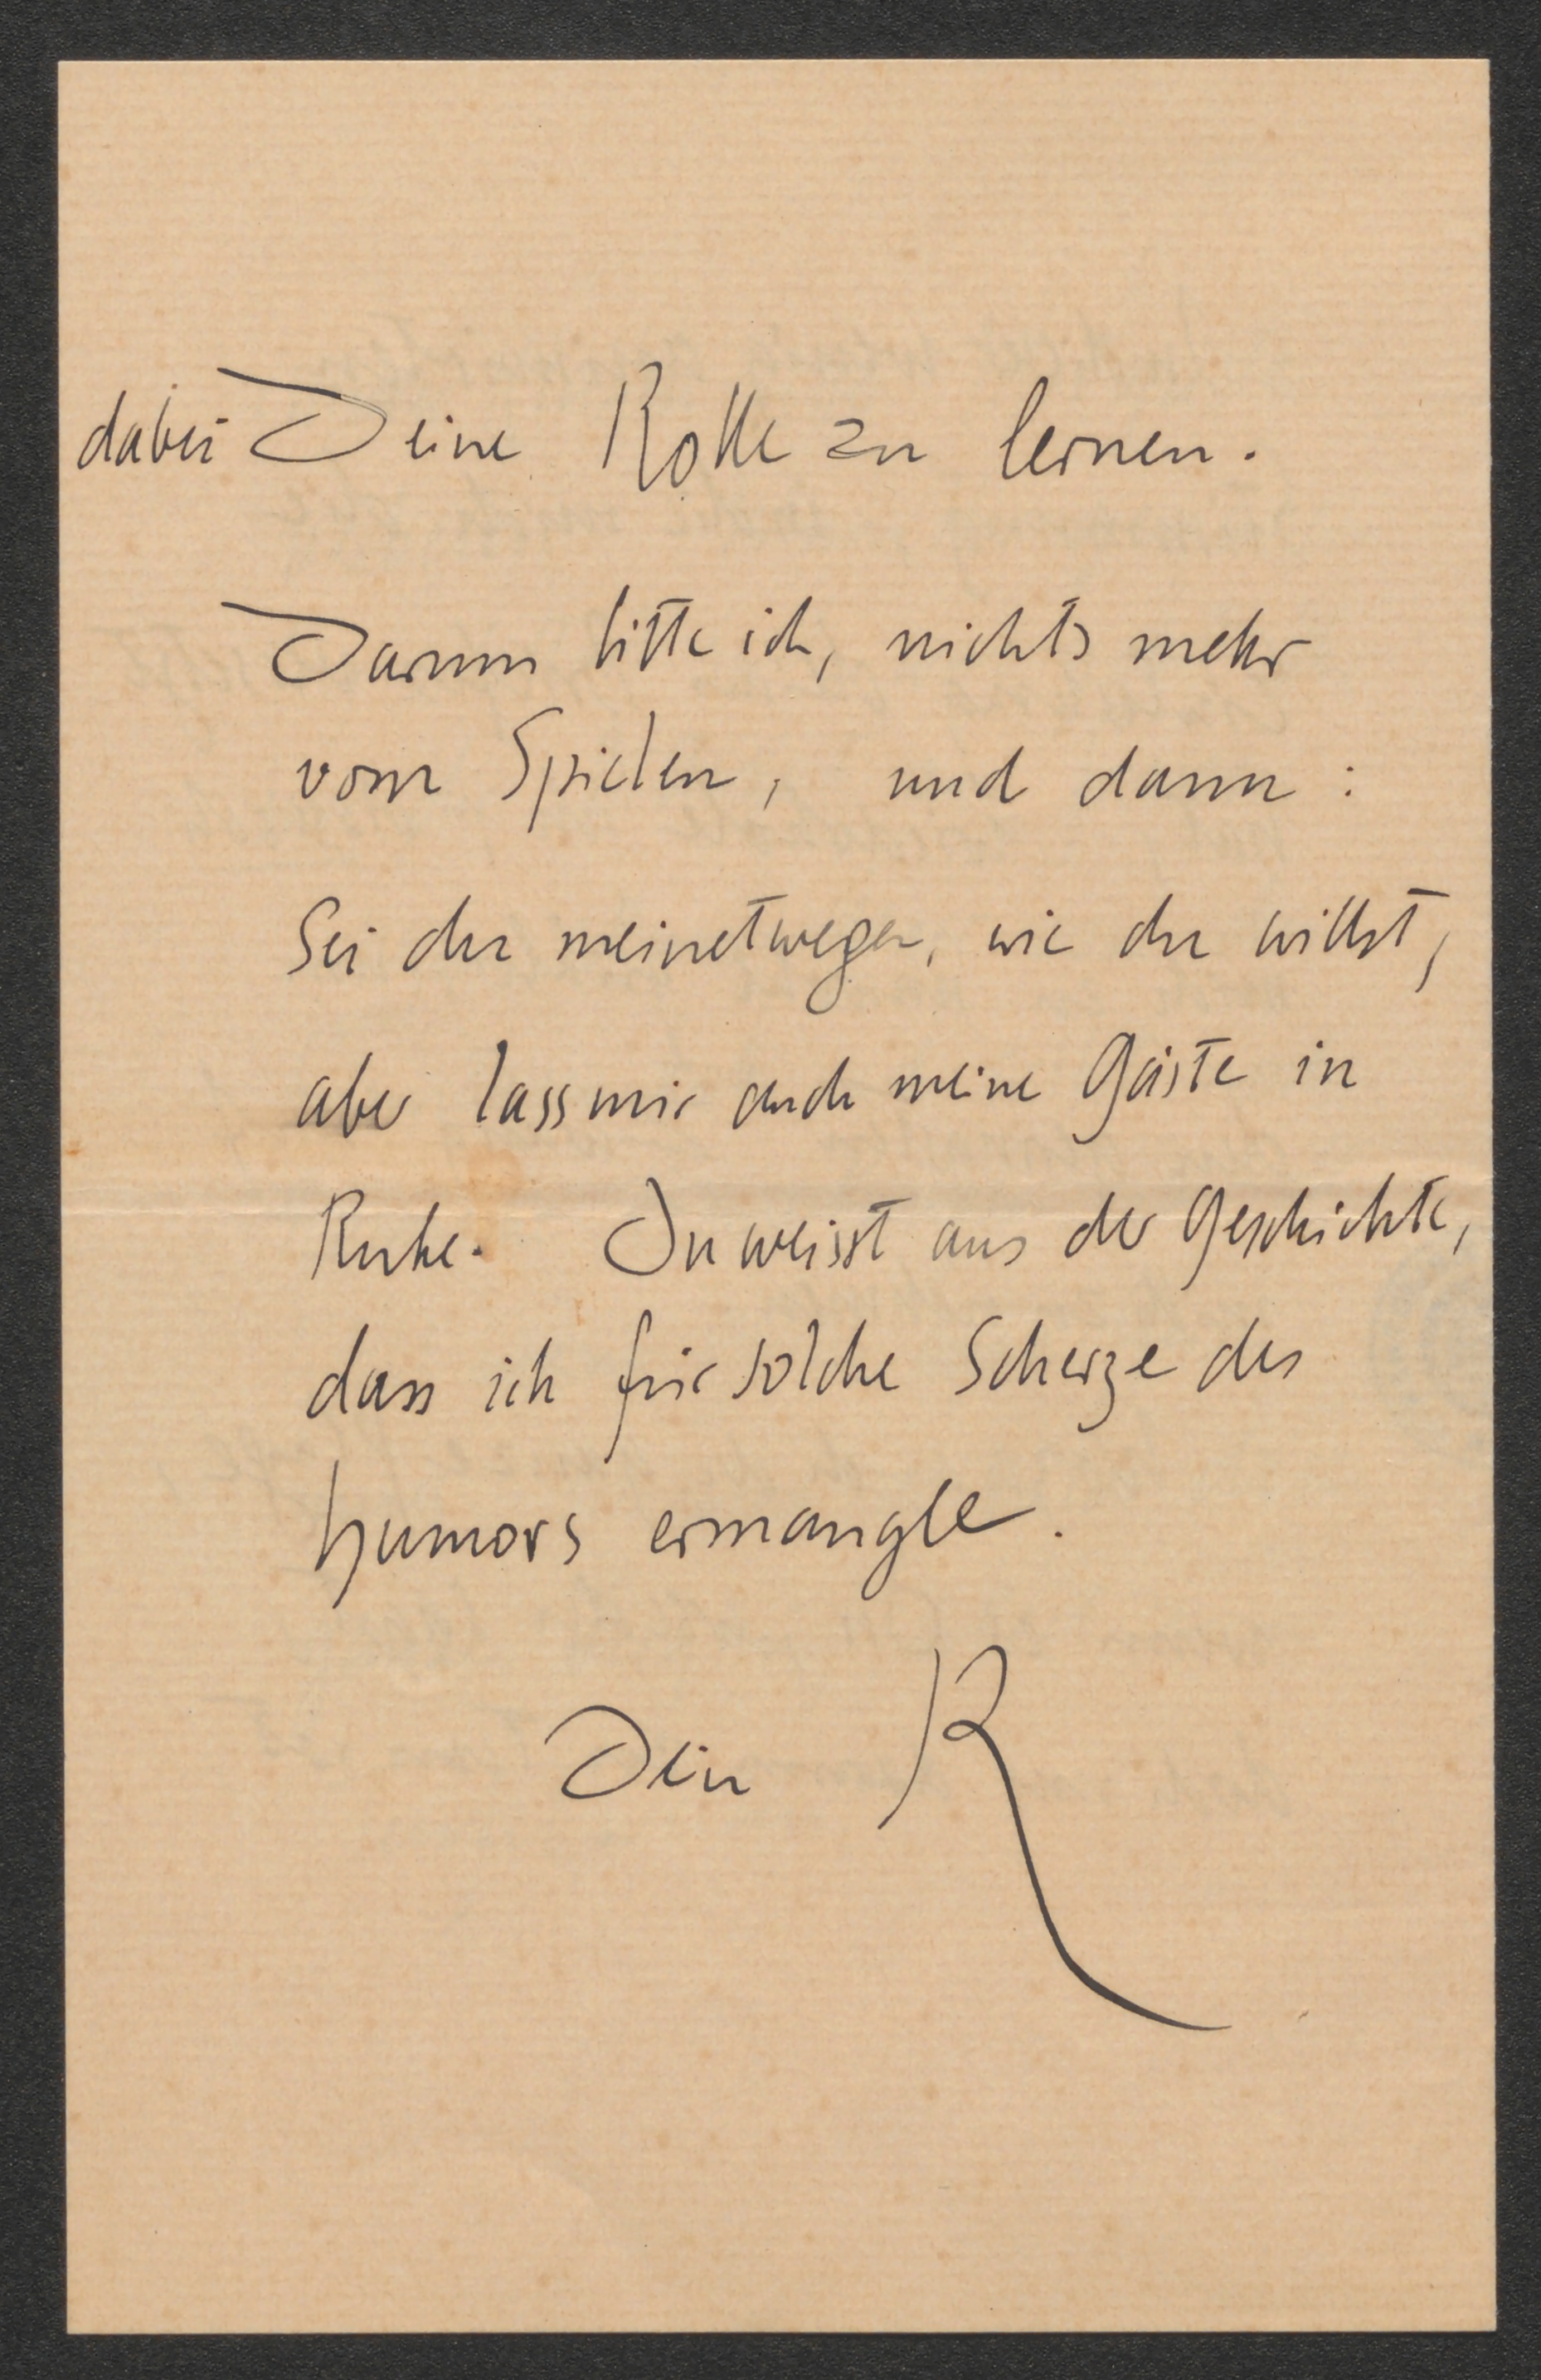 dabei Deine Rolle zu lernen.
Darum bitte ich, nichts mehr
vom Spielen, und dann:
Sei du meinetwegen, wie du willst,
aber lass mir auch meine Gäste in
Ruhe. Du weisst aus der Geschichte,
dass ich für solche Scherze des
humors ermangle.
Dein R